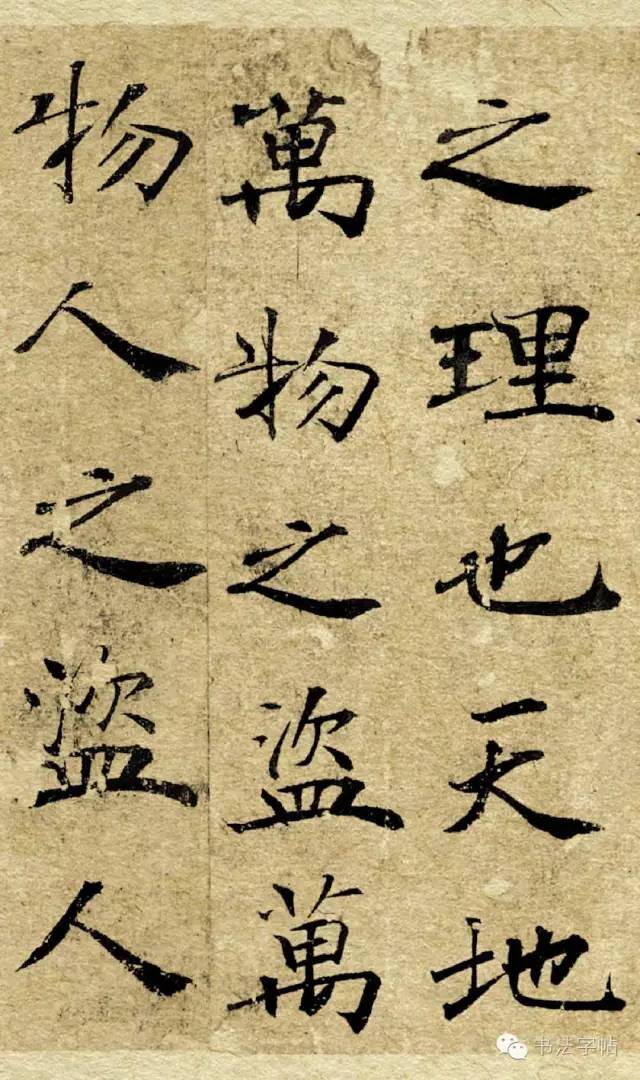 之理也天地
萬物之盜萬
物人之盜人
书法字帖